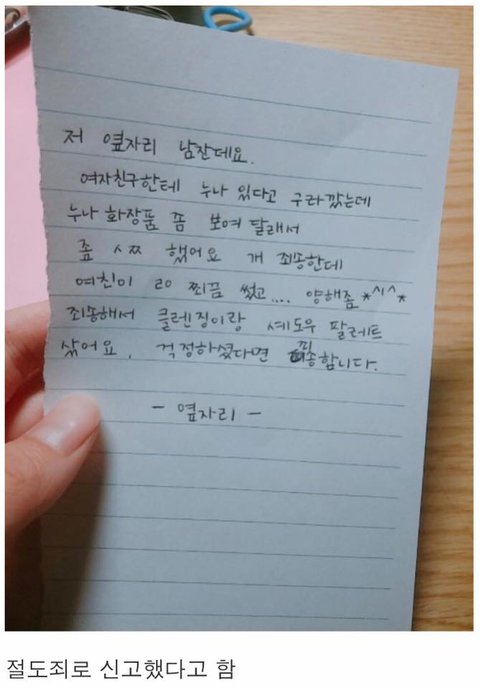 저 옆자리 남잔데요.
여자친구한테 누나 있다고 구라깠는데
누나 화장품 좀 보여 달래서
좀 ㅅㅉ 했어요 개 죄송한데
여친이 ㄹㅇ 찌끔 썼고.... 양해좀 *^^*
죄송해서 클렌징이랑 섀도우 팔레트
샀어요. 걱정하셨다면 죄송합니다.
- 옆자리 -
절도죄로 신고했다고 함